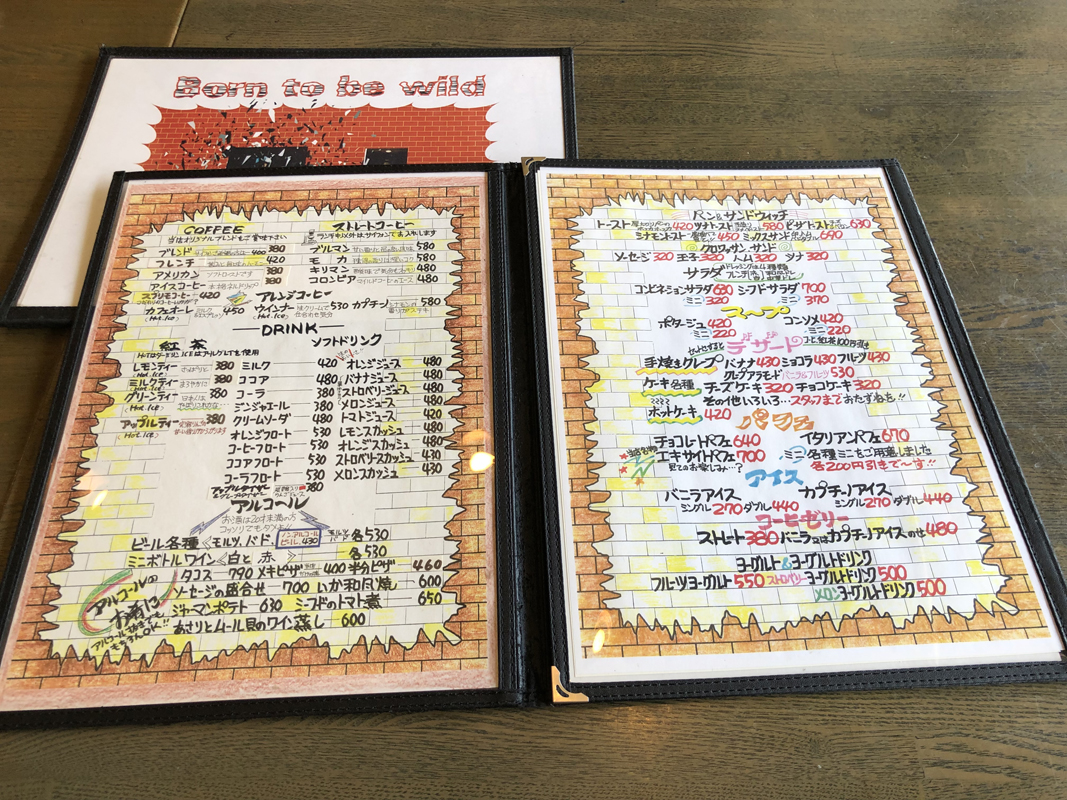 Born to be wild
COFFEE
当店オリジナルブレンドをご賞味下さい
ブレンド 380
400
フレンチ 420
アメリカン ソフトローストです 380
アイスコーヒー 380
エスプリモコーヒー 420
カフェオーレ 450
(Hot. Ice)
ストレートコーヒー
ブルマン 580
モカ 580
キリマン 480
コロンビア マイルドコーヒーのエース 480
アレンジコーヒー
ウインナー 530 カプチーノ 580
(Hot. Ice)
DRINK
紅茶
レモンティー さっぱりと 380
(Hot. Ice)
ミルクティー まろやかに 380
(Hot. Ice)
グリーンティー 380
(Hot. Ice)
アップルティー 380
(Hot. Ice)
ソフトドリンク
ミルク 420
ココア 480
コーラ 380
ジンジャエール 380
クリームソーダ 480
オレンジフロート 530
コーヒーフロート 530
ココアフロート 530
コーラフロート 530
アップルタイザー 380
オレンジジュース 480
バナナジュース 480
ストロベリジュース 480
メロンジュース 480
トマトジュース 420
レモンスカッシュ 480
オレンジスカッシュ 480
ストロベリースカッシュ 430
メロンスカッシュ 430
アルコール
お酒は20才未満の方
コッソリでもダメ!!
ビール各種 《モルツ、バド、 ノンアルコールビール 430 モルツ バド 各530
ミニボトルワイン 《白と赤、》 各530
アルコールのお伴に
タコス 790 メキピザ 400 半分ピザ 460
ソーセージの盛合せ 700 いか和風焼 600
ジャーマンポテト 630 シーフードのトマト煮 650
あさりとムール貝のワイン蒸し 600
パン&サンドウィッチ
トースト 420 ツナトースト 580 ピザトースト 630
シナモントースト 450 ミックスサンド 690
クロワッサンサンド
ソーセージ 320 玉子 320 ハム 320 ツナ 320
サラダ
コンビネーションサラダ 680 シーフードサラダ 700
ミニ 320 ミニ 370
スープ
ポタージュ 420 コンソメ 420
ミニ 220 ミニ 220
デザート
手焼きクレープ バナナ 430 ショコラ 430 フルーツ 430
クレープアラモード バニラ&フルーツ 530
ケーキ各種 チーズケーキ 320 チョコケーキ 320
その他いろいろ…スタッフまでおたずねを!!
ホットケーキ 420
パフェ
チョコレートパフェ 640 イタリアンパフェ 670
エキサイトパフェ 700 ミニ 各種ミニもご用意しました
見てのお楽しみ…? 各200円引きで〜す!!
アイス
バニラアイス カプチーノアイス
シングル 270 ダブル 440 シングル 270 ダブル 440
コーヒーゼリー
ストレート 380 バニラ又はカプチーノアイスのせ 480
ヨーグルト&ヨーグルトドリンク
フルーツヨーグルト 550 ストロベリーヨーグルトドリンク 500
メロンヨーグルトドリンク 500